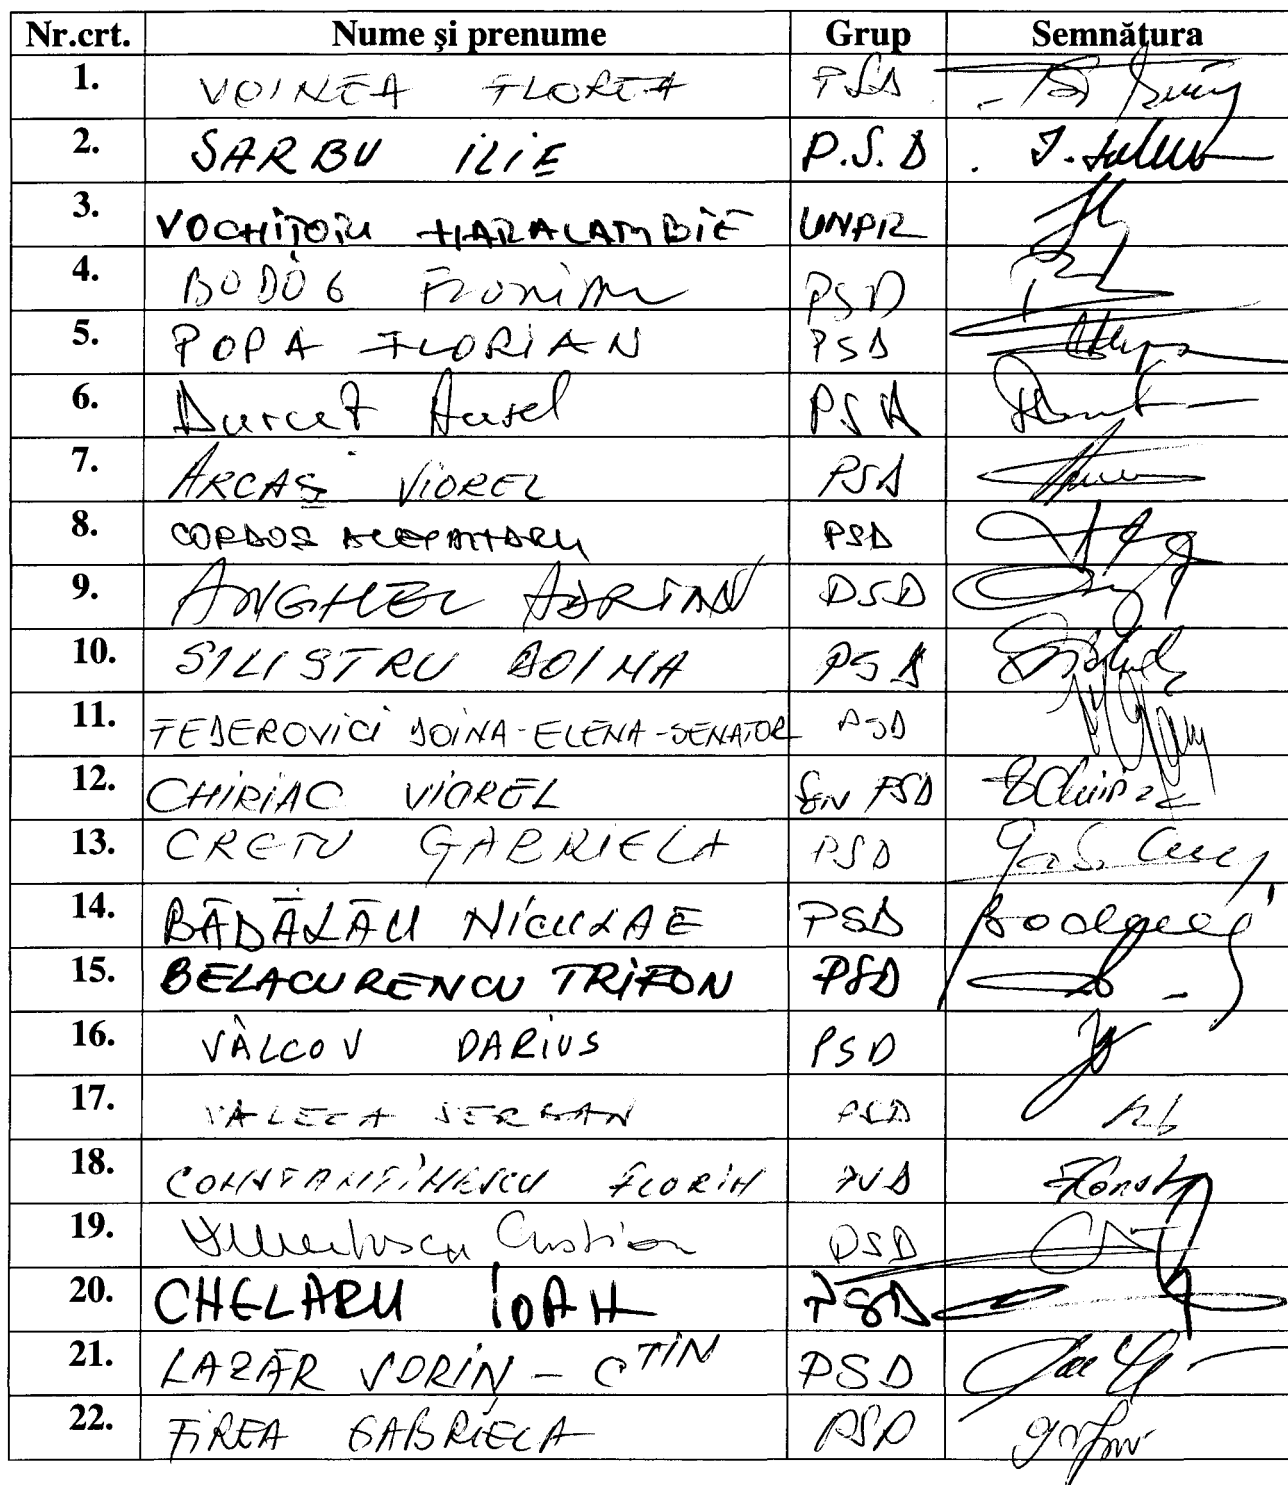 Nr.crt. Nume și prenume Grup Semnătura
1. VOINEA FLOREA PSD
2. SARBU ILIE P.S.D
3. VOCHIȚOIU HARALAMBIE UNPR
4. BODOG FLORIAN PSD
5. POPA FLORIAN PSD
6. Durcet Aurel PSD
7. ARCAȘ VIOREL PSD
8. CORDOS ALEXANDRU PSD
9. ANGHEL ADRIAN PSD
10. SILISTRU DOINA PSD
11. FEDEROVICI DOINA-ELENA-SENATOR PSD
12. CHIRIAC VIOREL PSD
13. CRETU GABRIELA PSD
14. BĂDĂLĂU NICULAE PSD
15. BELACURENCU TRIFON PSD
16. VÂLCOV DARIUS PSD
17. VALECA SERBAN PSD
18. CONSTANTINESCU FLORIN PSD
19. Cristian PSD
20. CHELARU IOAN PSD
21. LAZĂR SORIN - CTIN PSD
22. FIREA GABRIELA PSD